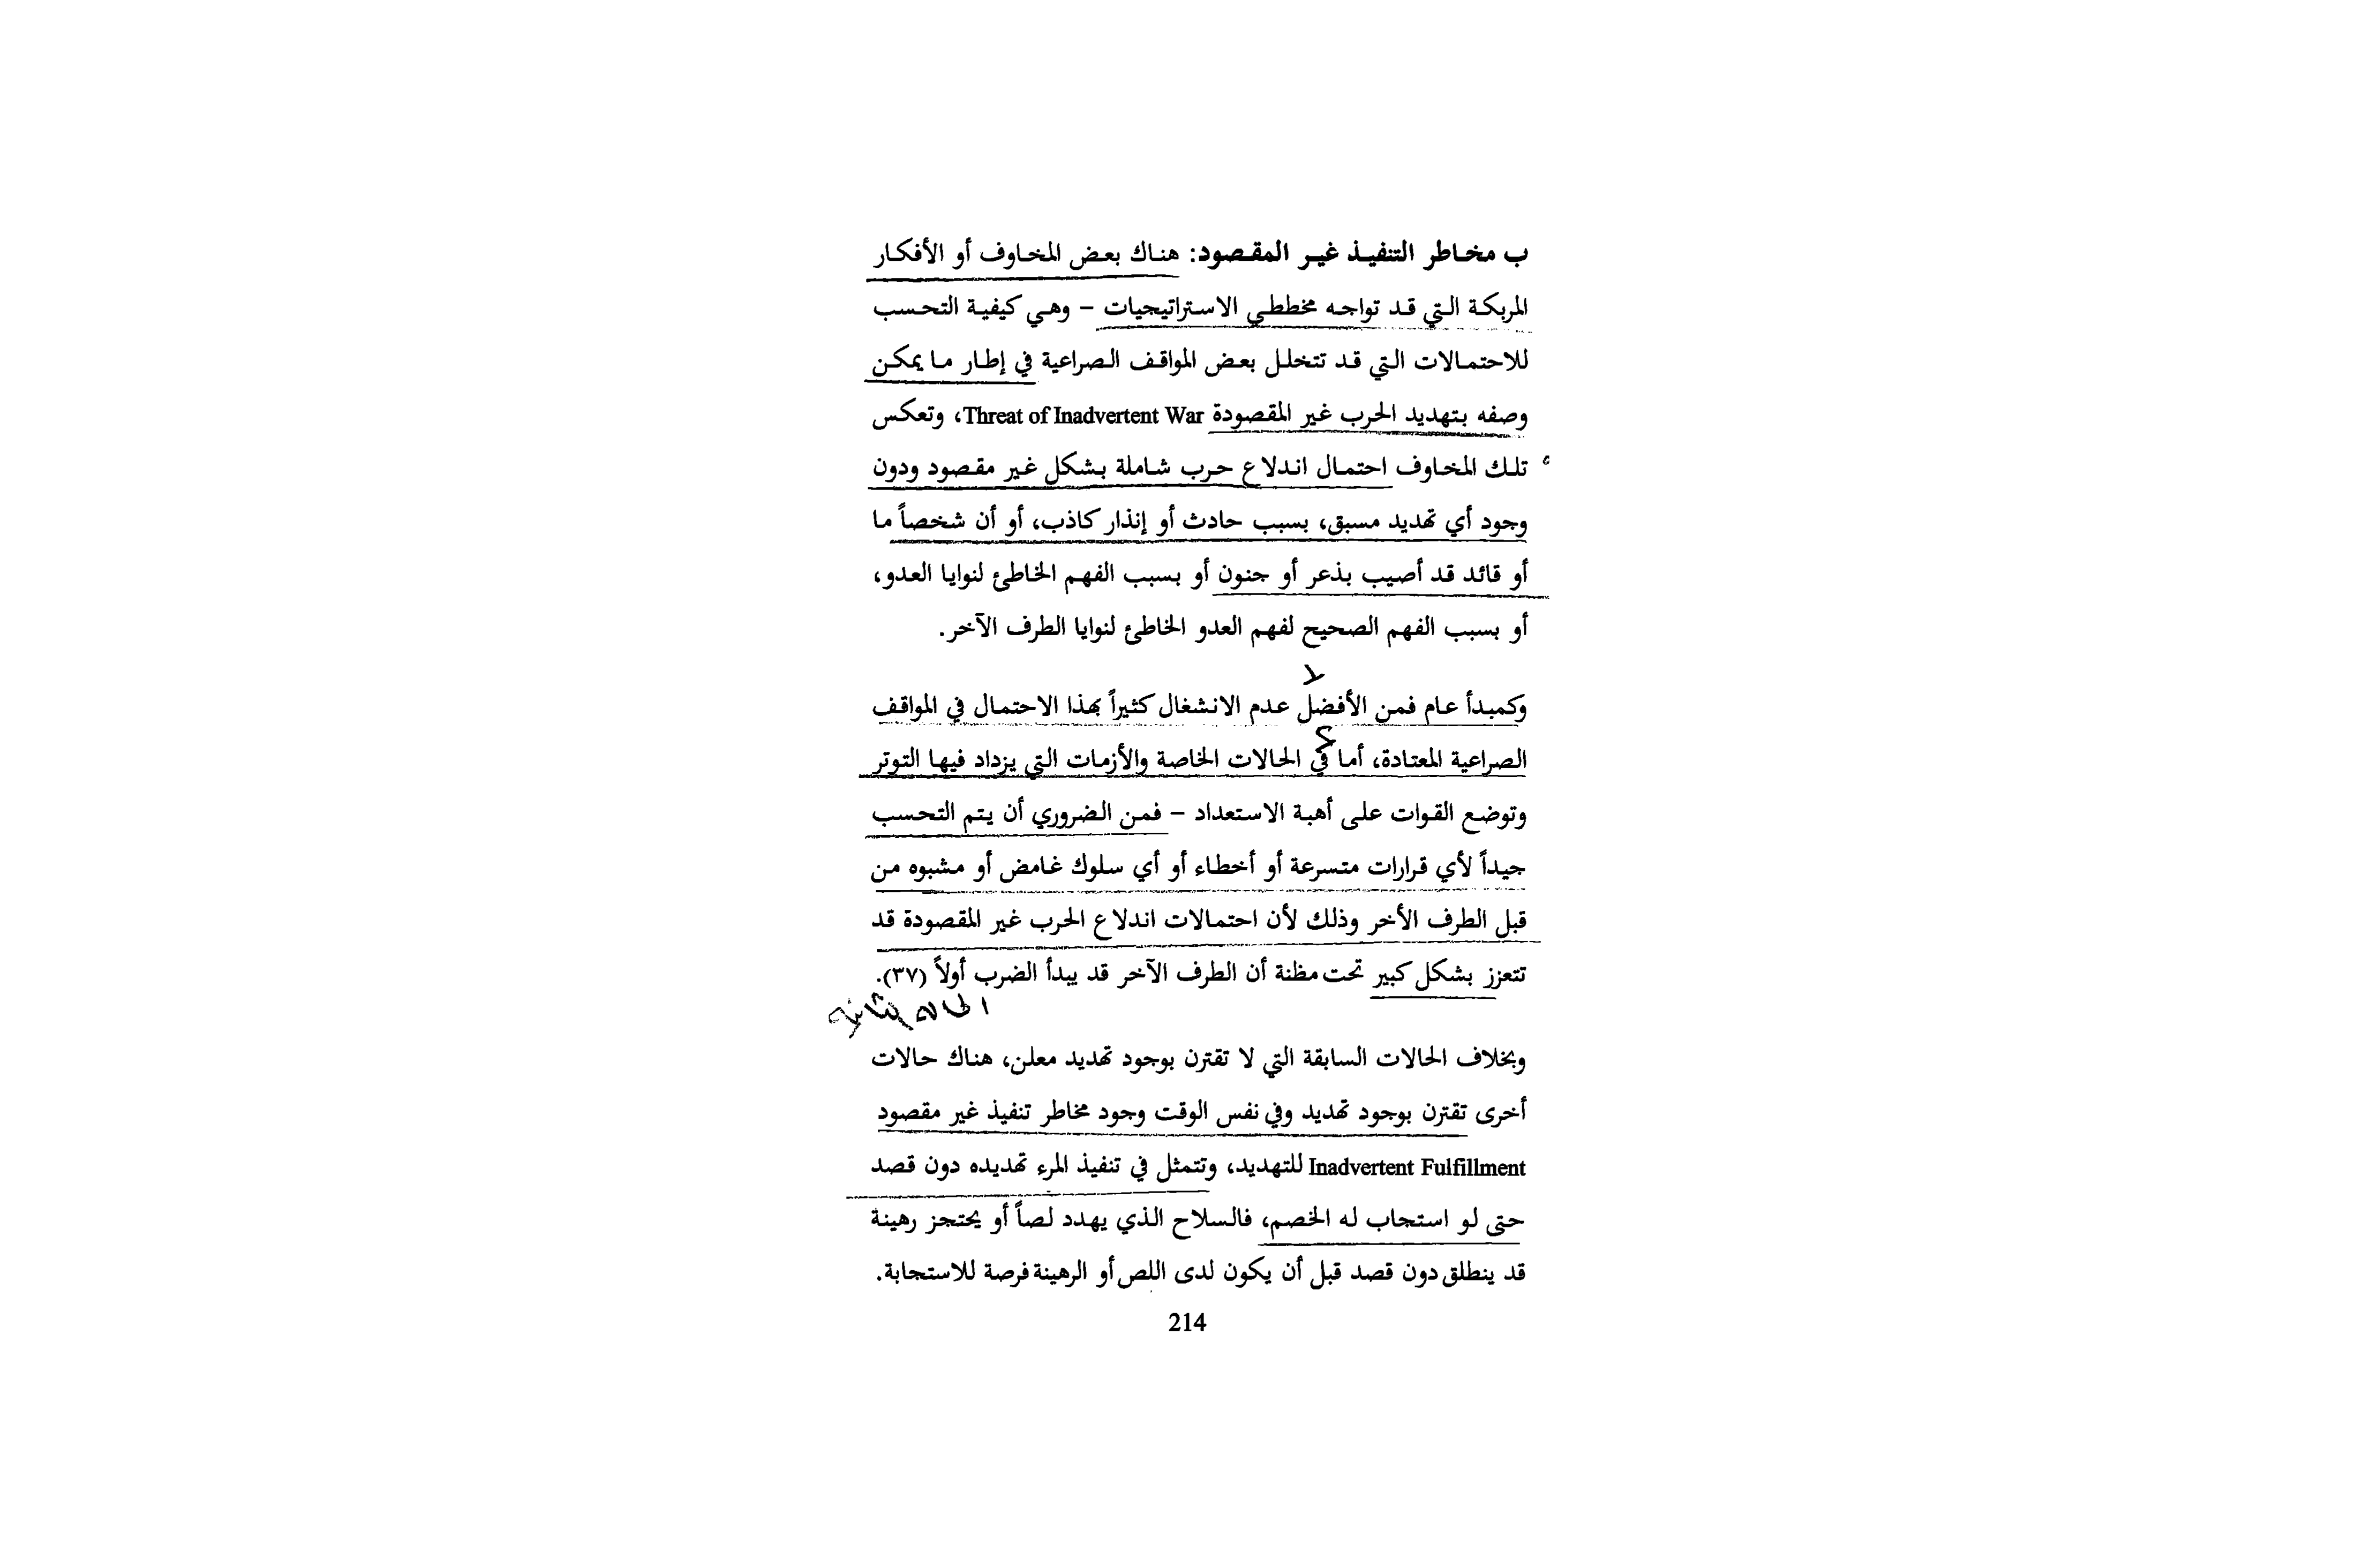 ب مخاطر التنفيذ غير المقصود: هناك بعض المخاوف أو الأفكار
المربكة التي قد تواجه مخططي الاستراتيجيات – وهي كيفية التحسب
للاحتمالات التي قد تتخلل بعض المواقف الصراعية في إطار ما يمكن
وصفه بتهديد الحرب غير المقصودة Threat of Inadvertent War، وتعكس
تلك المخاوف احتمال اندلاع حرب شاملة بشكل غير مقصود ودون
وجود أي تهديد مسبق، بسبب حادث أو إنذار كاذب، أو أن شخصاً ما
أو قائد قد أصيب بذعر أو جنون أو بسبب الفهم الخاطئ لنوايا العدو،
أو بسبب الفهم الصحيح لفهم العدو الخاطئ لنوايا الطرف الآخر.
وكمبدأ عام فمن الأفضل عدم الانشغال كثيراً بهذا الاحتمال في المواقف
الصراعية المعتادة، أما في الحالات الخاصة والأزمات التي يزداد فيها التوتر
وتوضع القوات على أهبة الاستعداد – فمن الضروري أن يتم التحسب
جيداً لأي قرارات متسرعة أو أخطاء أو أي سلوك غامض أو مشبوه من
قبل الطرف الأخر وذلك لأن احتمالات اندلاع الحرب غير المقصودة قد
تتعزز بشكل كبير تحت مظنة أن الطرف الآخر قد يبدأ الضرب أولاً (٣٧).
الحالة الثانية
وبخلاف الحالات السابقة التي لا تقترن بوجود تهديد معلن، هناك حالات
أخرى تقترن بوجود تهديد وفي نفس الوقت وجود مخاطر تنفيذ غير مقصود
Inadvertent Fulfillment للتهديد، وتتمثل في تنفيذ المرء تهديده دون قصد
حتى لو استجاب له الخصم، فالسلاح الذي يهدد لصاً أو يحتجز رهينة
قد ينطلق دون قصد قبل أن يكون لدى اللص أو الرهينة فرصة للاستجابة.
214